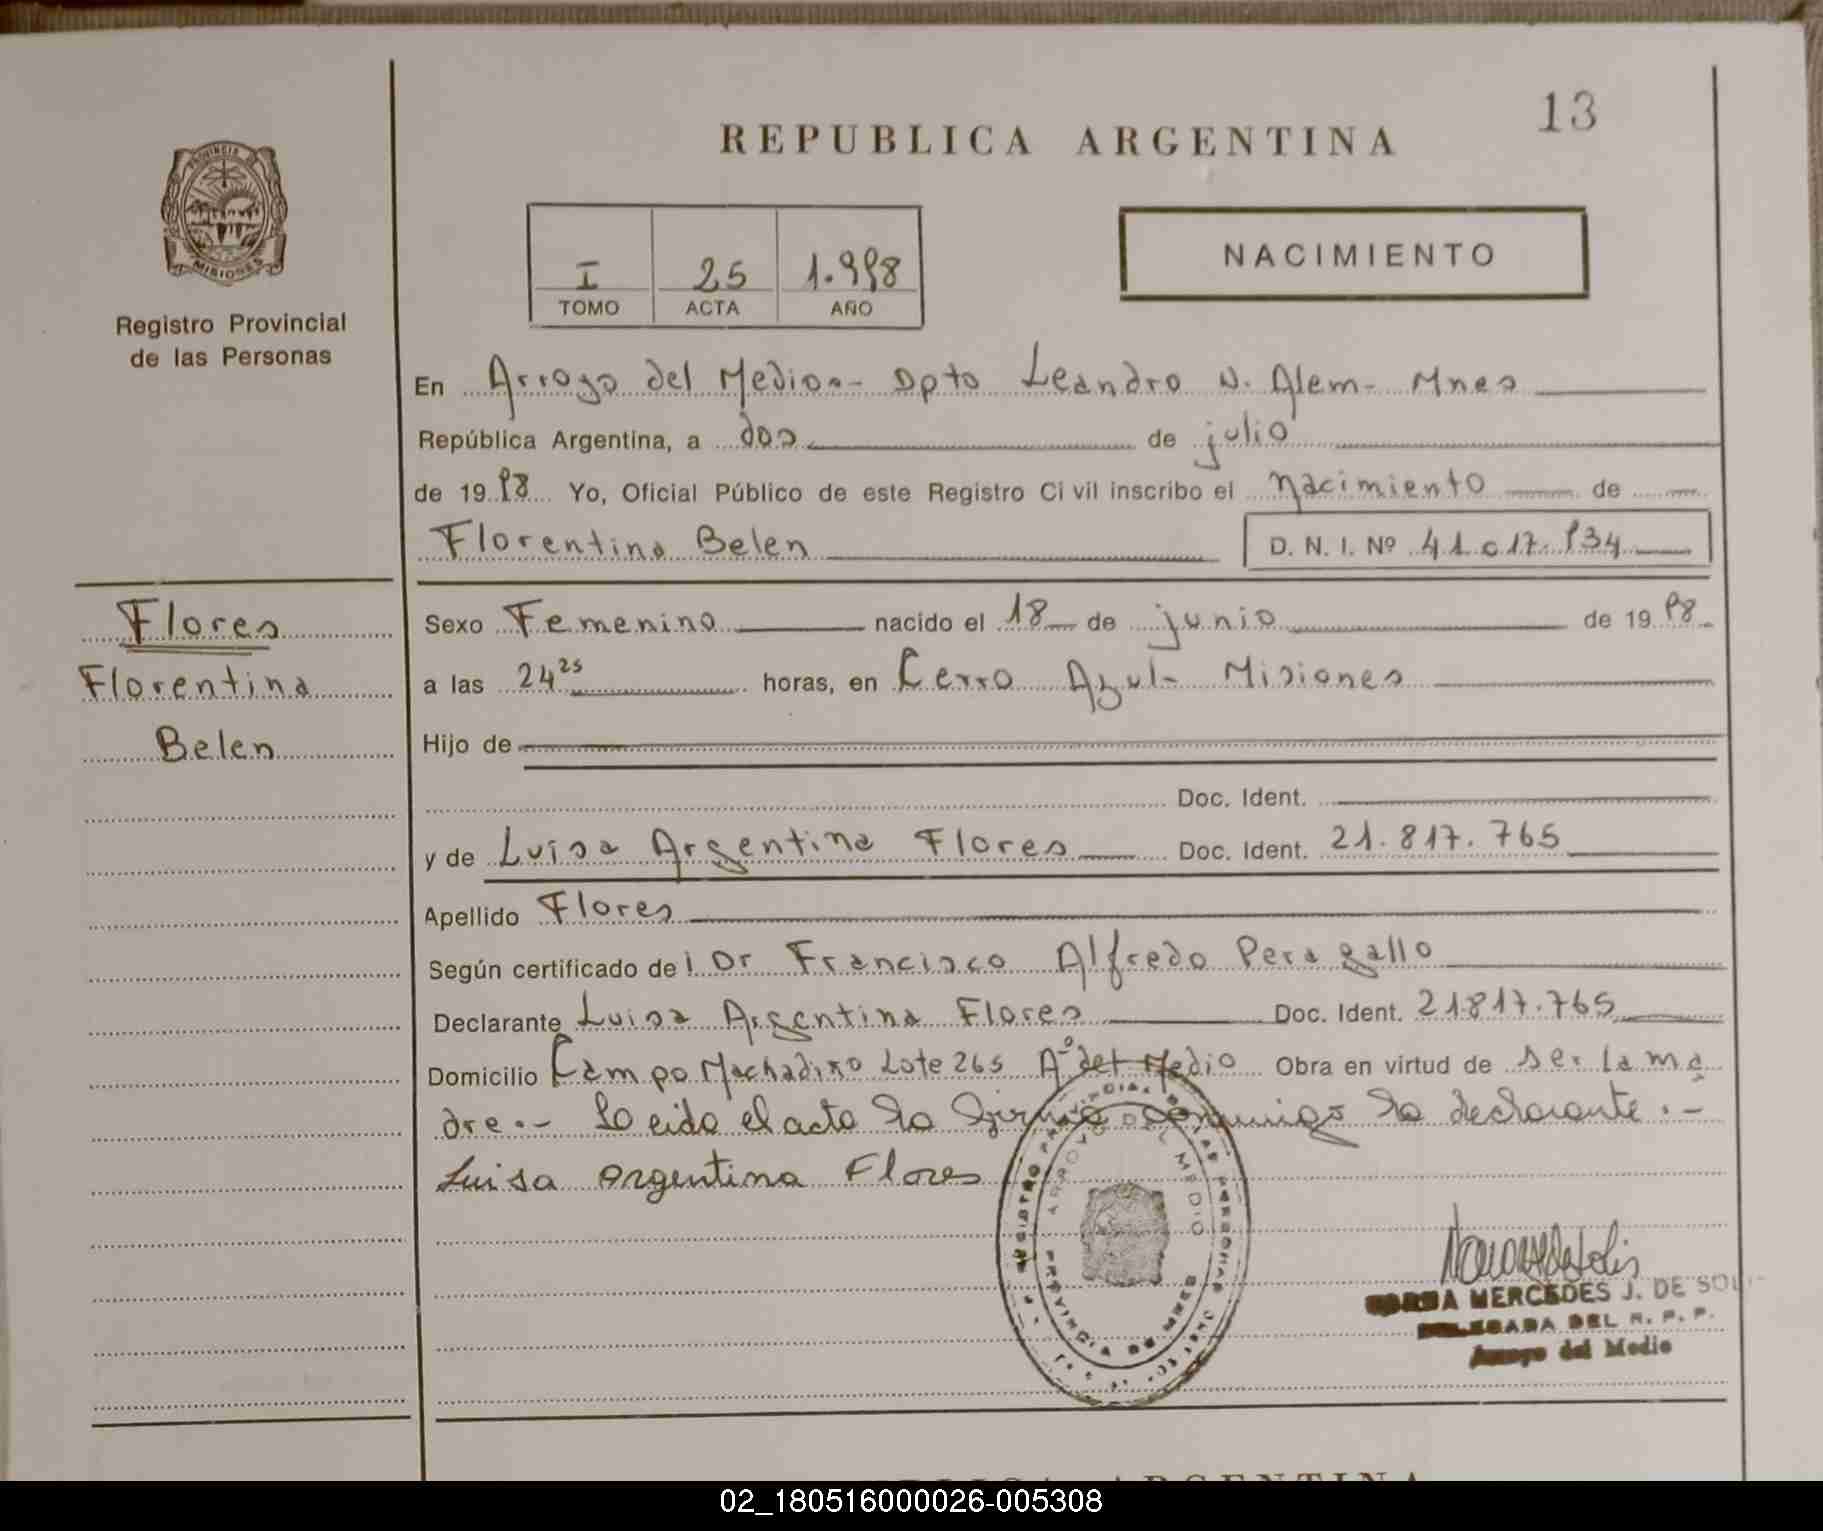 13
REPUBLICA ARGENTINA
PROVINCIA DE
MISIONES
Registro Provincial
de las Personas
I 25 1.998
TOMO ACTA AÑO
NACIMIENTO
En Arroyo del Medio.- Dpto Leandro N. Alem- Mnes
República Argentina, a dos de julio
de 19 98 Yo, Oficial Público de este Registro Civil inscribo el nacimiento de
Florentina Belen D. N. I. Nº 41.017.934
Flores
Florentina
Belen
Sexo Femenino nacido el 18 de junio de 19 98
a las 24 25 horas, en Cerro Azul- Misiones
Hijo de
Doc. Ident.
y de Luisa Argentina Flores Doc. Ident. 21.817.765
Apellido Flores
Según certificado de l Dr Francisco Alfredo Peragallo
Declarante Luisa Argentina Flores Doc. Ident. 21817.765
Domicilio Campo Machadino Lote 265 Aº del Medio Obra en virtud de ser la ma
dre.- Leida el acta la firma conmigo la declarante.-
Luisa Argentina Flores
ARROYO DEL MEDIO
PROVINCIA DE MNES
MERCEDES J. DE SOLI
DELEGADA DEL R. P. P.
Arroyo del Medio
ARGENTINA
02_180516000026-005308